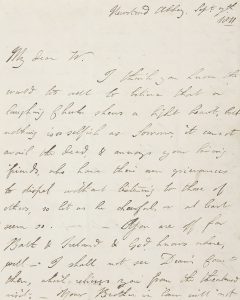 Newstead Abbey, Sept 9th
1811
My dear W.
I think you know the
world too well to believe that a
laughing cheek shews a light heart, but
nothing is so selfish as Sorrow, it cannot
avail the dead & annoys your living
friends, who have their own grievances
to dispel without listening to those of
others, so let us be cheerful, or at least
seem so. — You are off for
Bath & Ireland & God knows where,
well — I shall not see
then, relieves you from the threatened
visit. — Your Brother in will not